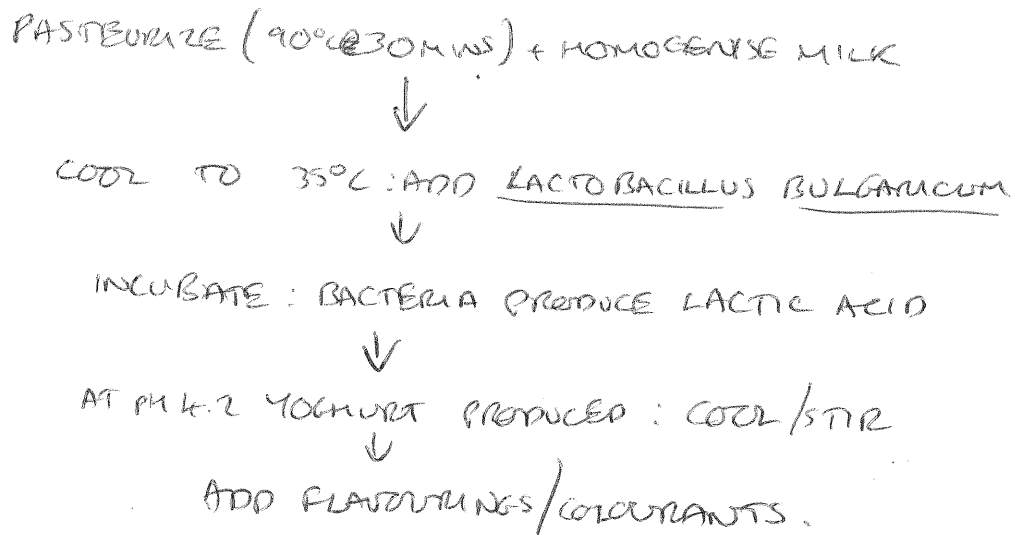 PASTEURIZE (90°C@30MINS) + HOMOGENISE MILK
↓
COOL TO 35°C : ADD LACTOBACILLUS BULGARICUM
↓
INCUBATE : BACTERIA PRODUCE LACTIC ACID
↓
AT PH 4.2 YOGHURT PRODUCED : COOL/STIR
↓
ADD FLAVOURINGS/COLOURANTS.